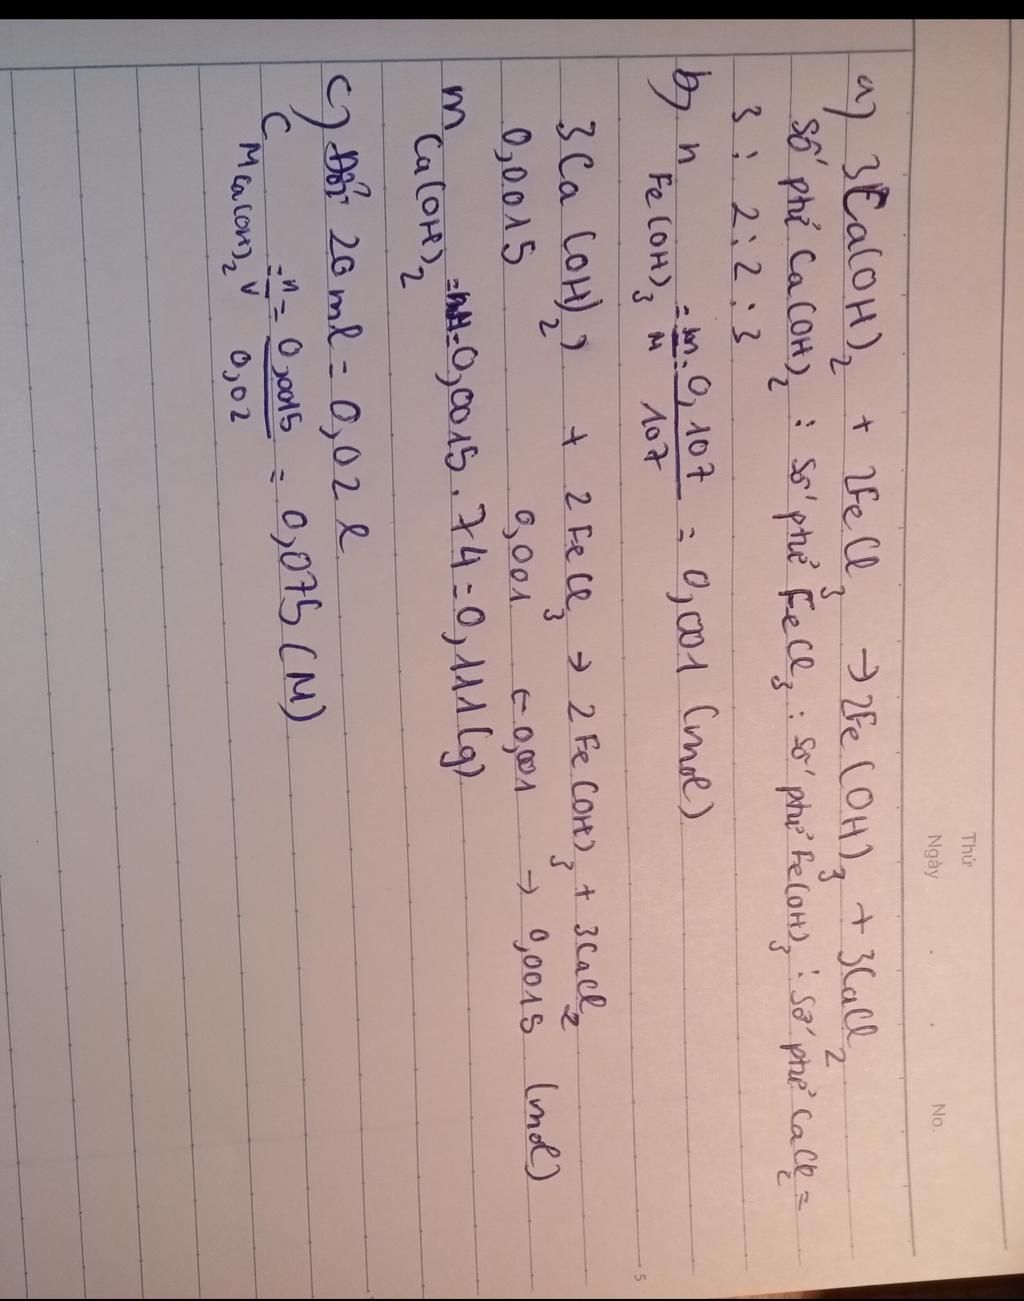 Thứ
Ngày . . No.
a) 3Ca(OH)2 + 2FeCl3 → 2Fe(OH)3 + 3CaCl2
Số phtử Ca(OH)2 : số phtử FeCl3 : số phtử Fe(OH)3 : số phtử CaCl2 =
3 : 2 : 2 : 3
b) n Fe(OH)3 = m/M = 0,107/107 = 0,001 (mol)
3Ca(OH)2 + 2FeCl3 → 2Fe(OH)3 + 3CaCl2
0,0015 0,001 ← 0,001 → 0,0015 (mol)
m Ca(OH)2 = nM = 0,0015 . 74 = 0,111 (g)
c) Đổi 20ml = 0,02 l
C M Ca(OH)2 = n/V = 0,0015/0,02 = 0,075 (M)
5